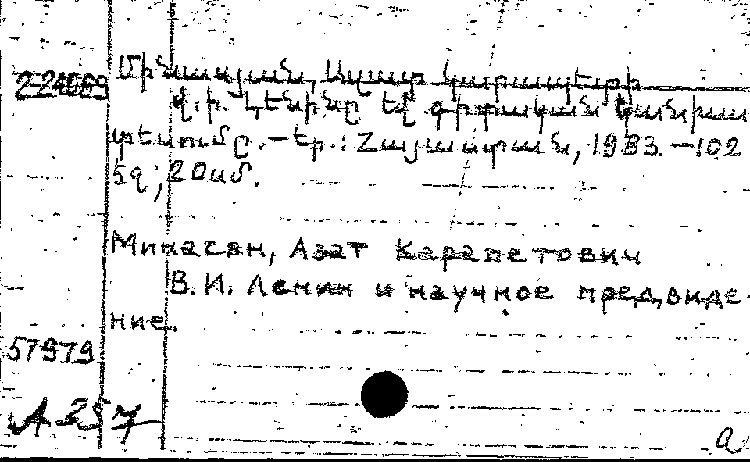 Մինասյան, Ազատ Կարապետի
Վ. Ի. Լենինը եվ գիտական կանխա
տեսումը. – Եր.: Հայաստան, 1983. – 102
էջ; 20սմ.
Минасян, Азат Карапетович
В. И. Ленин и научное предвиде-
ние.
57979
A 357